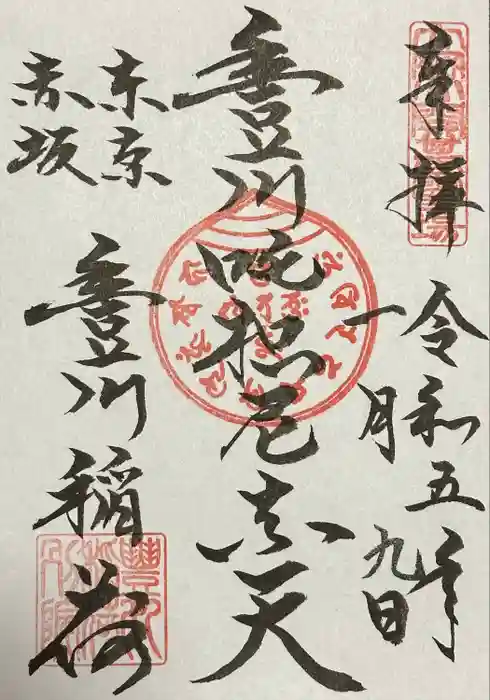 奉拝
令和五年
一月
九日
豊川吒枳尼真天
東京
赤坂
豊川稲荷